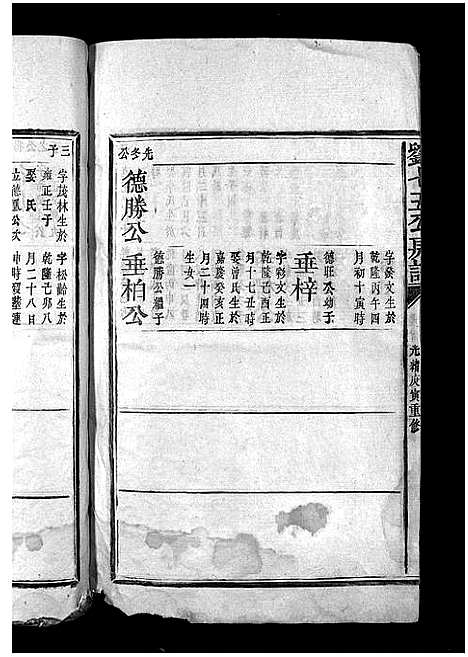 劉七五公房譜
光緒庚寅重修
字發文生於
乾隆丙午四
月初十寅時
垂梓
德旺公幼子
字彩文生於
乾隆己酉正
月十七丑時
娶曾氏生於
嘉慶癸亥正
月二十四時
生女一
垂柏公
德勝公繼子
德勝公
先冬公
三子
字茂林生於
雍正壬子
娶氏
字松齡生於
乾隆己卯八
月二十八日